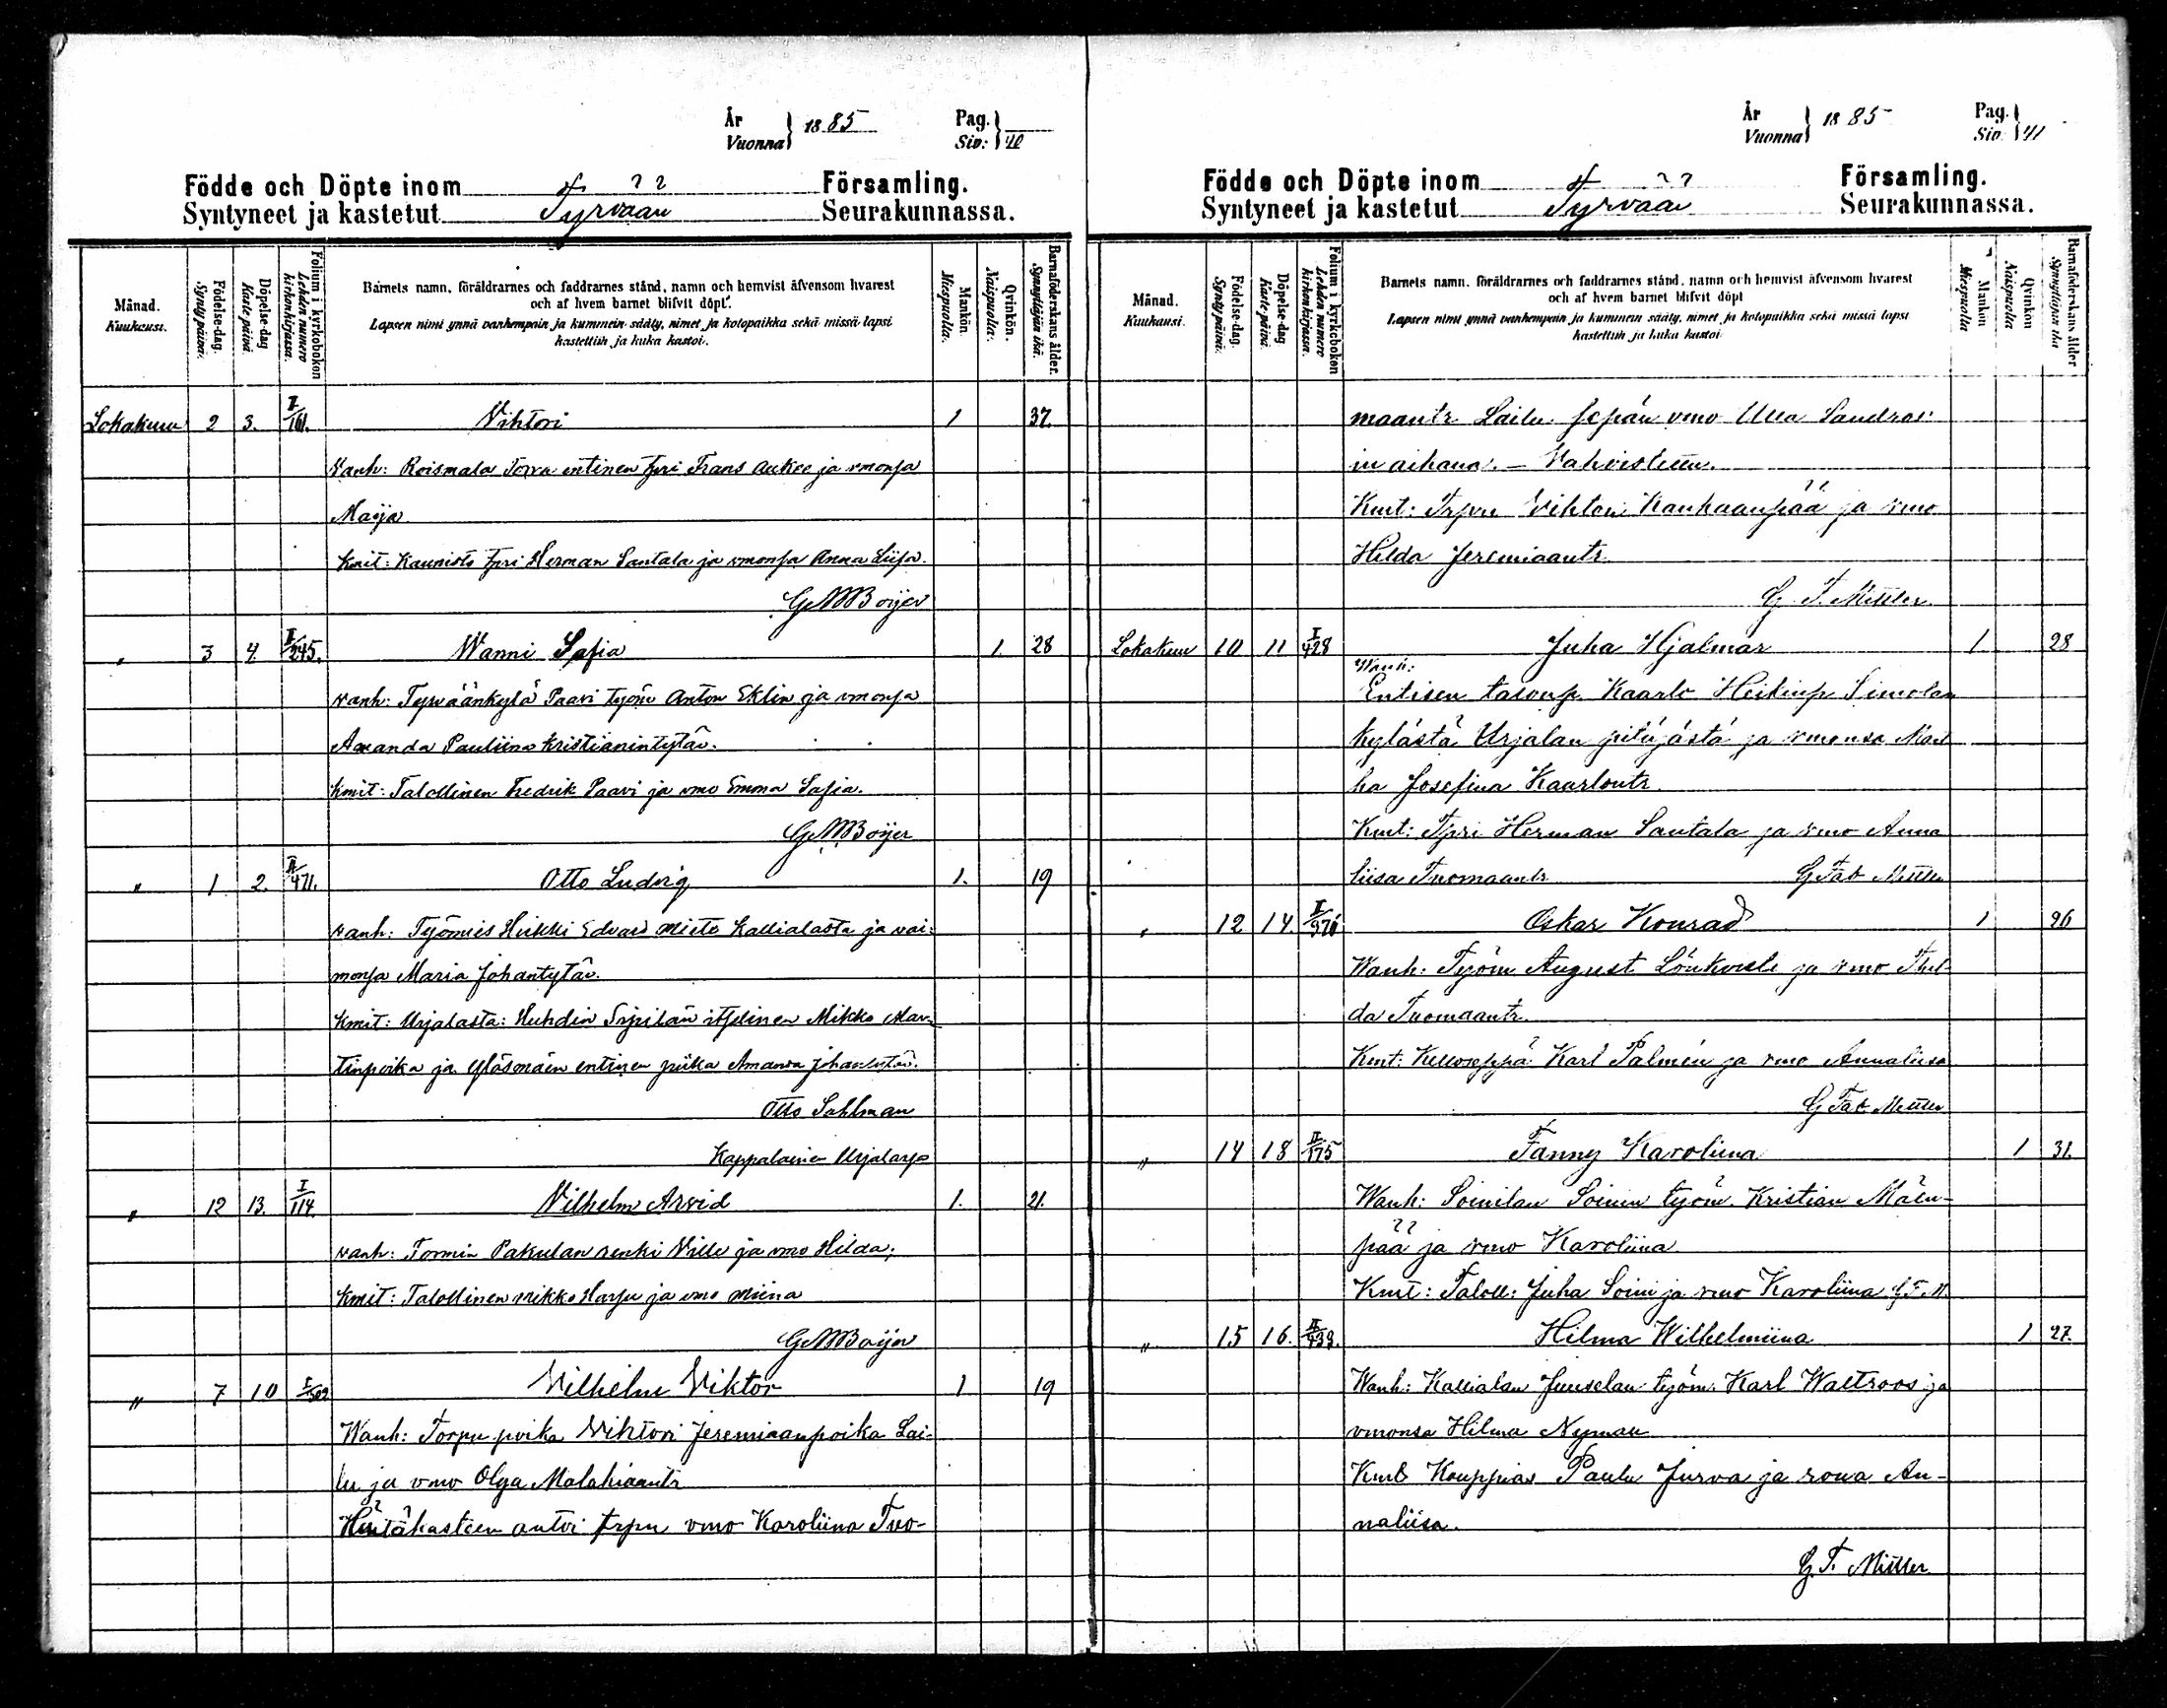 År
Vuonna 1885
Pag.
Siv: 40
Födde och Döpte inom Församling.
Syntyneet ja kastetut Tyrvään Seurakunnassa.
Månad.
Kuukausi.
Födelse-dag.
Synty päivä.
Döpelse-dag
Kaste päivä
Folium i kyrkoboken
Lehden numero
kirkonkirjassa.
Barnets namn, föräldrarnes och faddrarnes stånd, namn och hemvist äfvensom hvarest
och af hvem barnet blifvit döpt.
Lapsen nimi ynnä vanhempain ja kummein sääty, nimet ja kotopaikka sekä missä lapsi
kastettiin ja kuka kastoi.
Mankön.
Miespuolia.
Qvinkön.
Naispuolia.
Barnaföderskans ålder.
Synnyttäjän ikä.
Lokakuu 2 3. I/161. Vihtori 1 37.
Vanh: Roismala Torra entinen tpri Frans Aukee ja vmonsa
Maija
Kmit: Kaunisto tpri Herman Santala ja vmonsa Anna Liisa.
G M Boijer
" 3 4. I/245. Nanni Sofia 1. 28
vanh: Tyrväänkylä Paavi työm Anton Eklin ja vmonsa
Amanda Pauliina Kristianintytär.
Kmit: Talollinen Fredrik Paavi ja vmo Emma Sofia.
G M Boijer
" 1 2. II/471. Otto Ludvig 1. 19
vanh: Työmies Heikki Edvard Mieto Kallialasta ja vai-
monsa Maria Johantytär.
Kmit: Urjalasta: Huhdin itsellinen Mikko Mar-
tinpoika ja entinen piika Amanda Johantytär.
Otto Sahlman
Kappalainen Urjalassa
" 12 13. I/114. Vilhelm Arvid 1. 21.
vanh: Tormin Pakulan renki Ville ja vmo Hilda;
Kmit: Talollinen Mikko Harju ja vmo Miina
G M Boijer
" 7 10 I/502 Vilhelm Viktor 1 19
Wanh: Torpu poika Vihtori Jeremiaanpoika Lai-
lu ja vmo Olga Malakiaantr
Hätäkasteen antoi trpn vmo Karoliina Tuo-
År
Vuonna 1885
Pag.
Siv. 41
Födde och Döpte inom Församling.
Syntyneet ja kastetut Tyrvään Seurakunnassa.
Månad.
Kuukausi.
Födelse-dag.
Synty päivä.
Döpelse-dag
Kaste päivä.
Folium i kyrkoboken
Lehden numero
kirkonkirjassa.
Barnets namn, föräldrarnes och faddrarnes stånd, namn och hemvist äfvensom hvarest
och af hvem barnet blifvit döpt
Lapsen nimi ynnä vanhempain ja kummein sääty, nimet ja kotopaikka sekä missä lapsi
kastettiin ja kuka kastoi
Mankön
Miespuolia
Qvinkön
Naispuolia
Barnaföderskans ålder
Synnyttäjän ikä
maantr Lailu. sepän vmo Ulla Sandroo:
in aikana. — Vahvistettu.
Kmt: Trpn Vihtori Kanhaanpää ja vmo
Hilda Jeremiaantr
G. F. Mittler
Lokakuu 10 11 I/428 Juha Hjalmar 1 28
Wanh:
Entisen talonp. Kaarlo Heikinp. Simolan
kylästä Urjalan pitäjästä ja vmonsa Mari
ha Josefina Kaarlontr.
Kmt: Tpri Herman Santala ja vmo Anna
liisa Tuomaantr G Fab Mittler
" 12 14. I/376 Oskar Konrad 1 26
Wanh: Työm August Lönkvist ja vmo Thil-
da Tuomaantr.
Kmt: Kelloseppä Karl Palmén ja vmo Annaliisa
G Fab Mittler
" 14 18 II/175 Fanny Karoliina 1 31.
Wanh: Soinilan Soinin työm. Kristian Mäen-
pää ja vmo Karoliina
Kmt: Taloll: Juha Soini ja vmo Karoliina G. F. M.
" 15 16. II/439. Hilma Wilhelmiina 1 27.
Wanh: Kallialan Junselan työm. Karl Waltroos ja
vmonsa Hilma Nyman
Kmt Kauppias Paulu Jurva ja rouva An-
naliisa.
G. F. Mittler